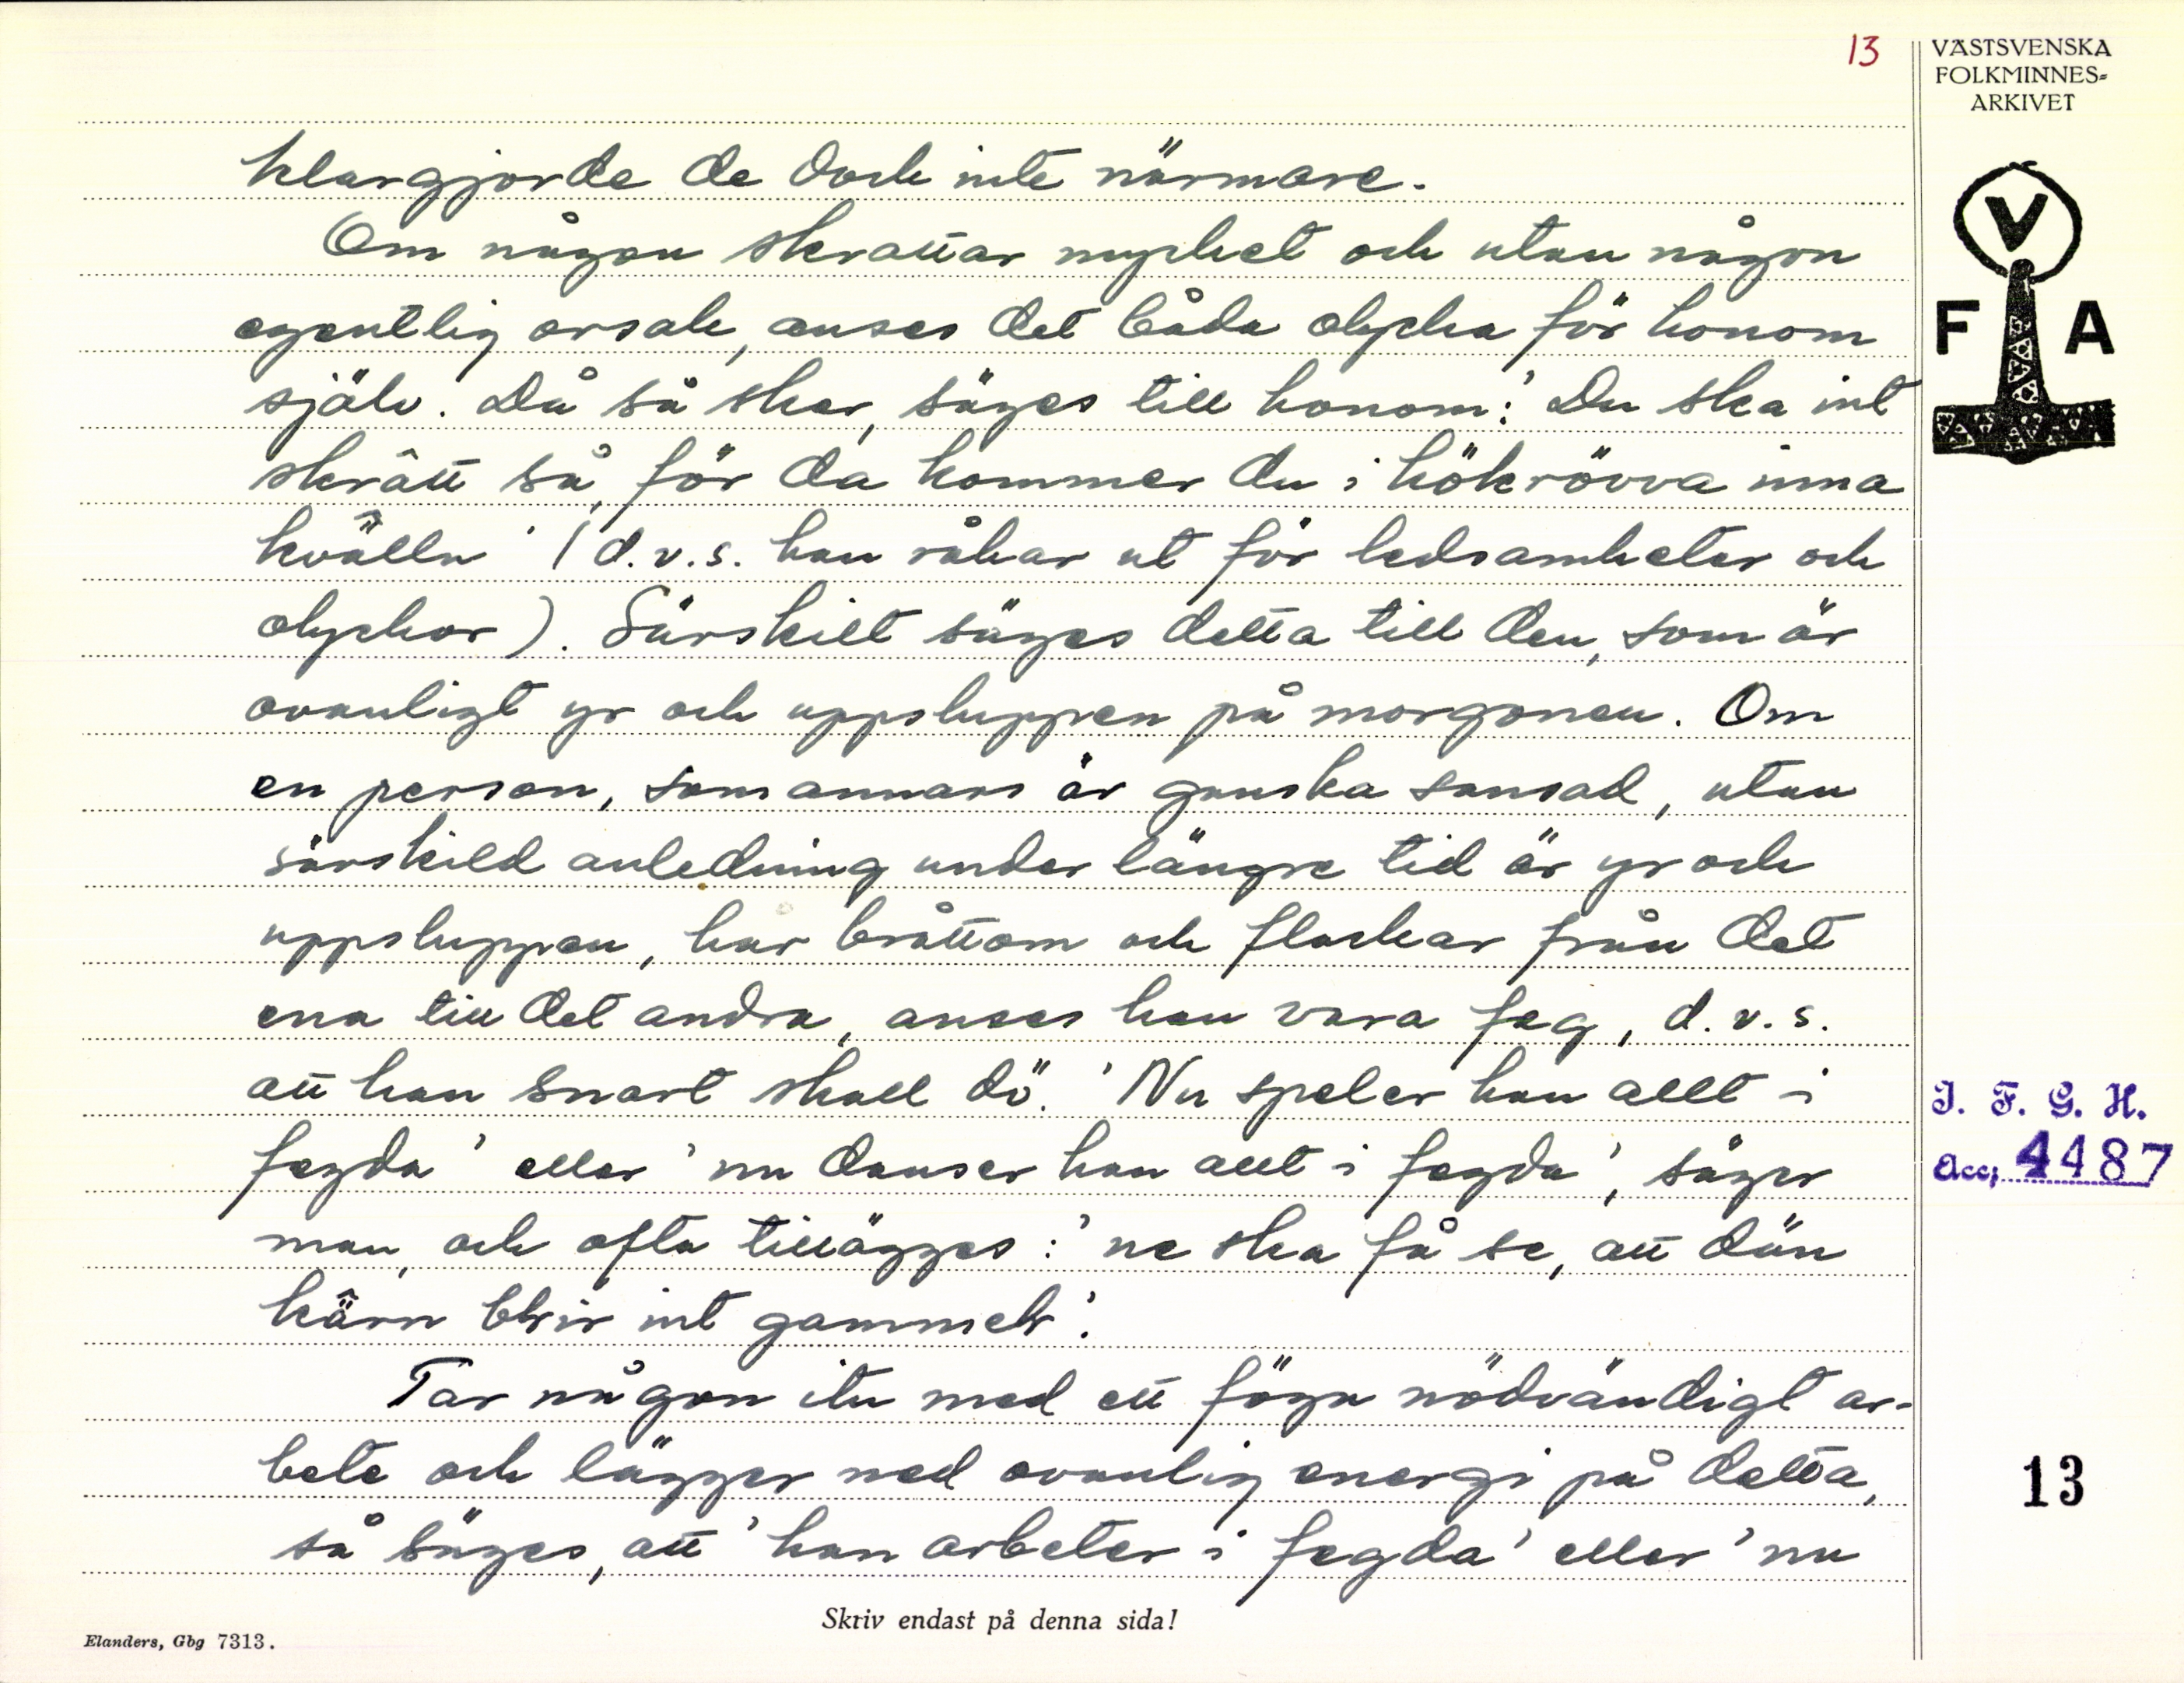 13
VÄSTSVENSKA
FOLKMINNES-
ARKIVET
V
F A
klargjorde de dock inte närmare.
Om någon skrattar mycket och utan någon
egentlig orsak, anses det båda olycka för honom
själv. Då så sker, säges till honom: 'Du ska int
skrâtt så, för da kommer du i hökrövva inna
kvälln' (d.v.s. han råkar ut för ledsamheter och
olyckor). Särskilt säges detta till den, som är
ovanligt yr och uppsluppen på morgonen. Om
en person, som annars är ganska sansad, utan
särskild anledning under längre tid är yr och
uppsluppen, har bråttom och flackar från det
ena till det andra, anses han vara feg, d.v.s.
att han snart skall dö. 'Nu speler han allt i
fegda' eller 'nu danser han allt i fegda', säger
man, och ofta tillägges: 'ne ska få se, att dän
kärn blir int gammel'.
Tar någon itu med ett föga nödvändigt ar-
bete och lägger ned ovanlig energi på detta,
så säges, att 'han arbeter i fegda' eller 'nu
I. F. G. H.
Acc; 4487
13
Skriv endast på denna sida!
Elanders, Gbg 7313.